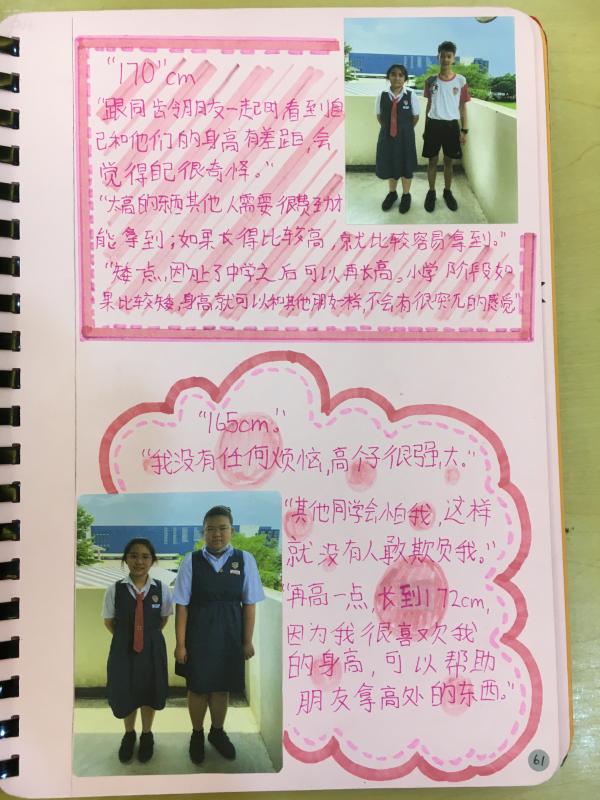 “170”cm
“跟同龄朋友一起时看到自
己和他们的身高有差距，会
觉得自己很奇怪。”
“太高的东西其他人需要很费劲才
能拿到；如果长得比较高，就比较容易拿到。”
“矮一点，因为上了中学之后可以再长高。小学阶段如
果比较矮，身高就可以和其他朋友一样，不会有很突兀的感觉”
“165cm。”
“我没有任何烦恼，高个子很强大。”
“其他同学会怕我，这样
就没有人敢欺负我。”
“再高一点，长到172cm，
因为我很喜欢我
的身高，可以帮助
朋友拿高处的东西。”
61